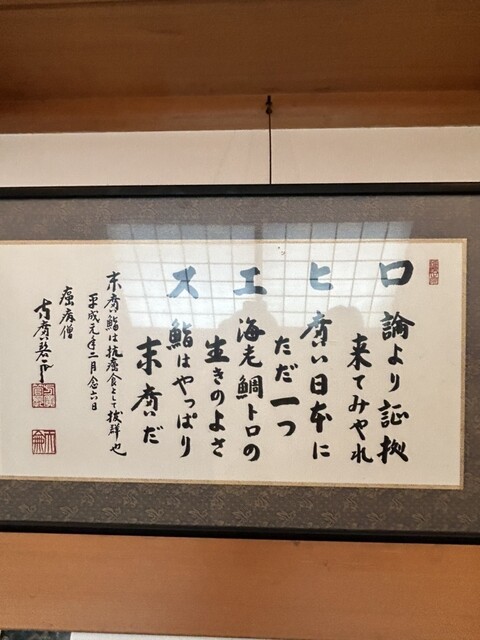 ロ 論より証拠
来てみやれ
ヒ 廣い日本に
ただ一つ
エ 海老鯛トロの
生きのよさ
ス 鮨はやっぱり
末廣だ
末廣鮨は抗癌食として抜群也
平成元年二月念六日
癌病僧